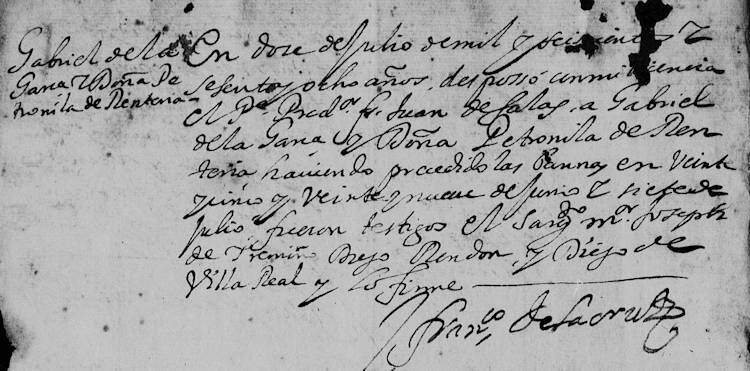 Gabriel de la
Garza Y Doña Pe
tronila de Renteria
En doze de Julio de mil y seiscientos Y
sesenta y ocho años, desposso con mi licencia
el Pe. Predor. fr. Juan de Salas, a Gabriel
de la Garza y Doña Petronila de Ren
teria haviendo precedido las Bannas en Veinte
y cinco y Veinte y nueve de Junio Y siete de
Julio fueron testigos el Sargto. mor. Joseph
de Treviño Diego Rendon, y Diego de
Villa Real y lo firme
Franco. de la Cruz